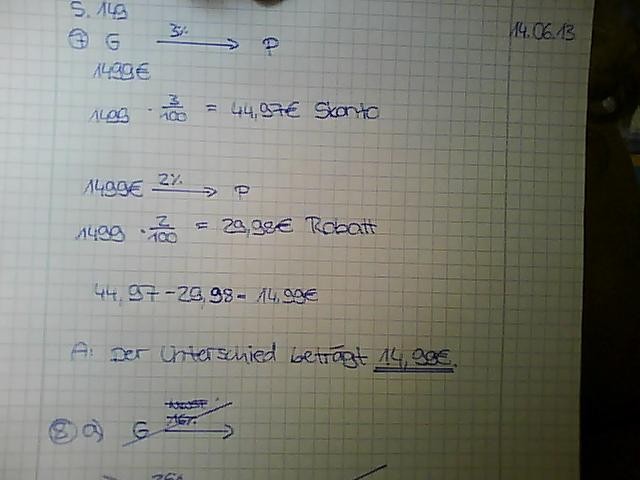 S. 149
14.06.13
⑦ G 3% → P
1499€
1499 · 3/100 = 44,97€ Skonto
1499€ 2% → P
1499 · 2/100 = 29,98€ Rabatt
44,97-29,98= 14,99€
A: Der Unterschied beträgt 14,99€.
⑧ a) G →